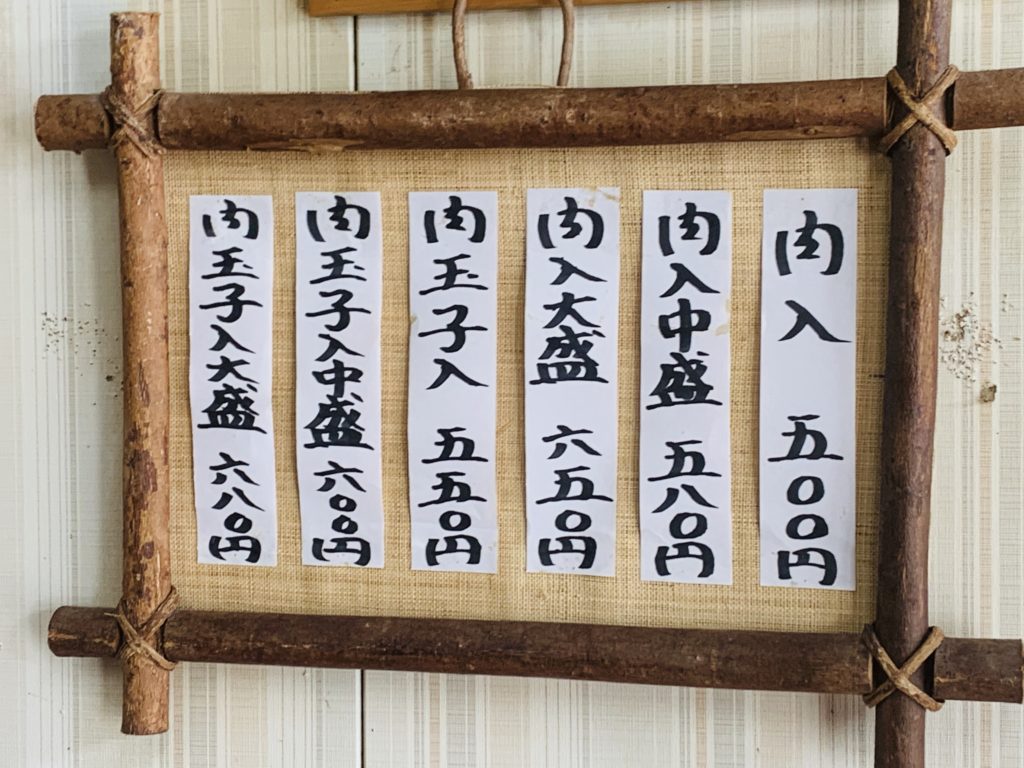 肉入 五〇〇円
肉入中盛 五八〇円
肉入大盛 六五〇円
肉玉子入 五五〇円
肉玉子入中盛 六〇〇円
肉玉子入大盛 六八〇円